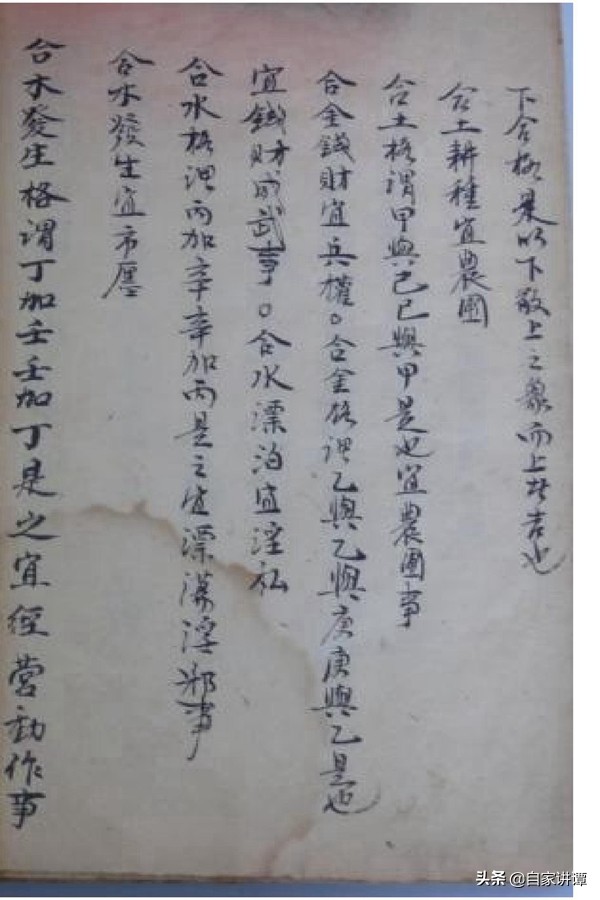 下合格是以下敬上之象而上者吉也
合土耕種宜農圃
合土格謂甲與己己與甲是也宜農圃事
合金錢財宜兵權。合金格謂乙與乙與庚庚與乙是也
宜錢財成武事。合水漂泊宜淫私
合水格謂丙加辛辛加丙是之宜漂蕩淫邪事
合木發生宜市廛
合木發生格謂丁加壬壬加丁是之宜經營動作事
头条 @自家讲谭